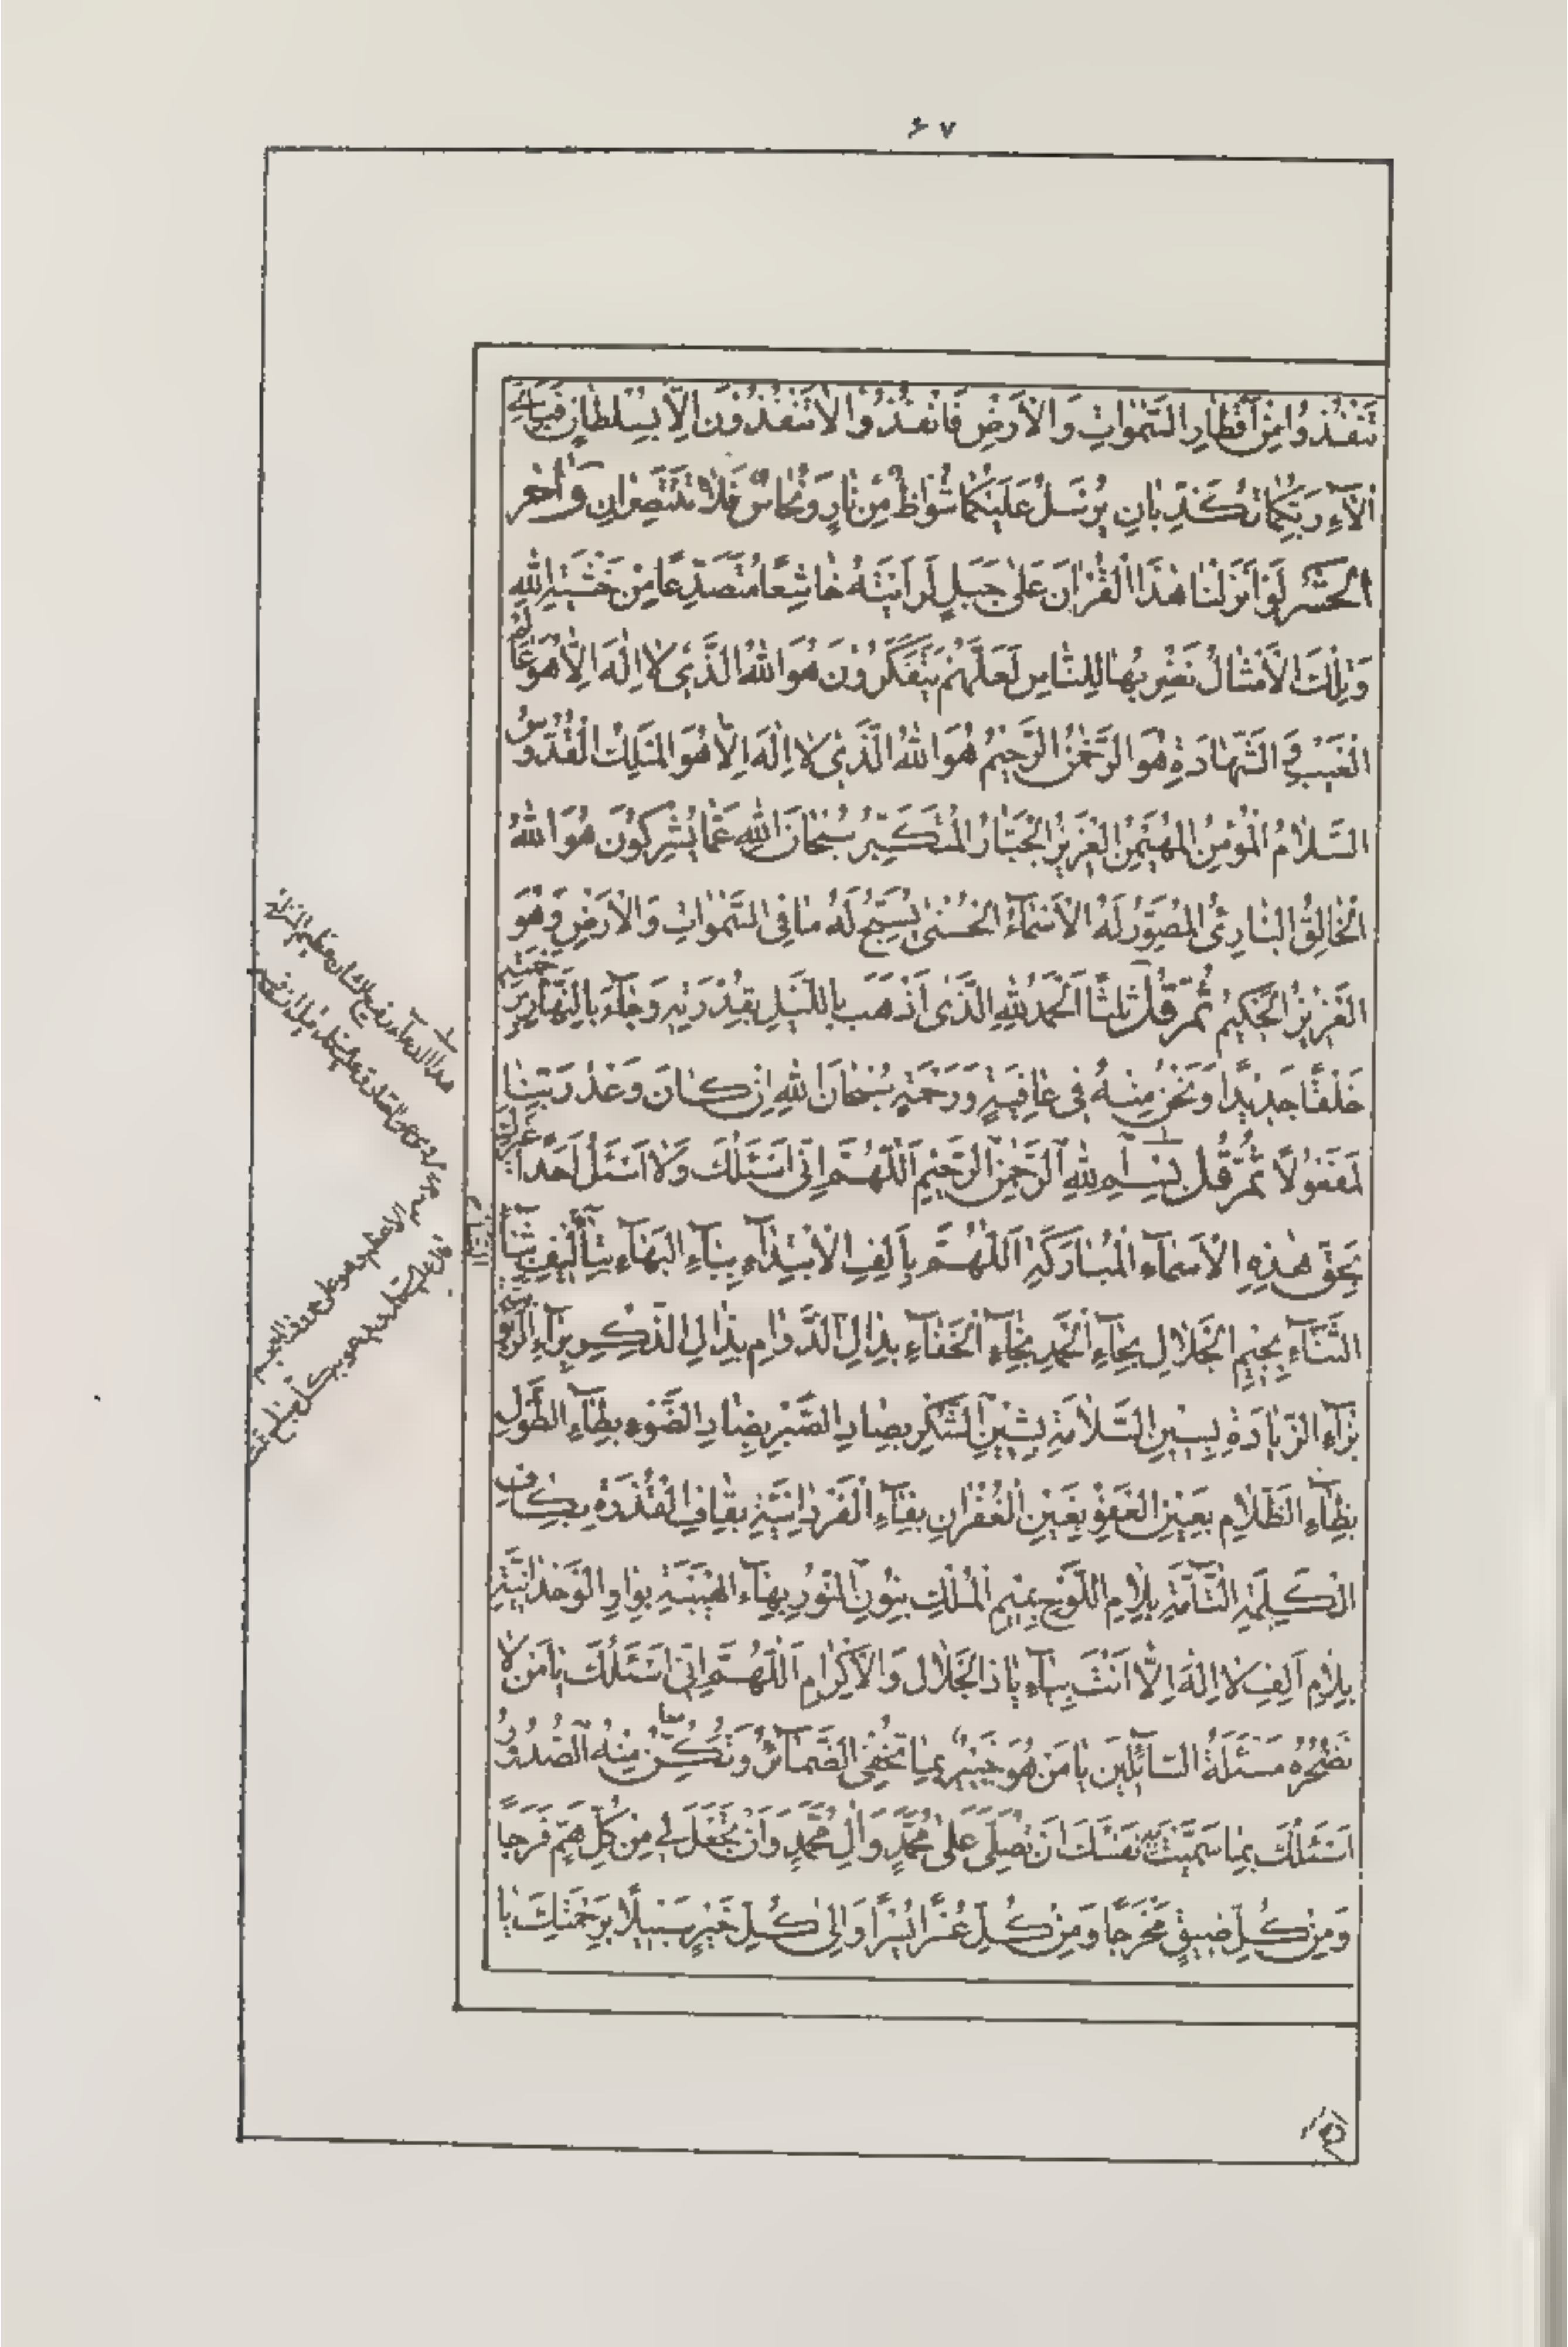 ۶۷
تَنْفُذُوا مِنْ أَقْطَارِ السَّمٰوَاتِ وَالْأَرْضِ فَانْفُذُوا لَاتَنْفُذُونَ إِلَّا بِسُلْطَانٍ فَبِأَيِّ
اٰلَاءِ رَبِّكُمَا تُكَذِّبَانِ يُرْسَلُ عَلَيْكُمَا شُوَاظٌ مِنْ نَارٍ وَنُحَاسٌ فَلَا تَنْتَصِرَانِ وَآخر
الْحَشْر لَوْ اَنْزَلْنَا هٰذَا الْقُرْاٰنَ عَلٰى جَبَلٍ لَرَاَيْتَهُ خَاشِعًا مُتَصَدِّعًا مِنْ خَشْيَةِ اللّٰهِ
وَتِلْكَ الْاَمْثَالُ نَضْرِبُهَا لِلنَّاسِ لَعَلَّهُمْ يَتَفَكَّرُونَ هُوَ اللّٰهُ الَّذِي لَا اِلٰهَ اِلَّا هُوَ عَالِمُ
الْغَيْبِ وَ الشَّهَادَةِ هُوَ الرَّحْمٰنُ الرَّحِيمُ هُوَ اللّٰهُ الَّذِي لَا اِلٰهَ اِلَّا هُوَ الْمَلِكُ الْقُدُّوسُ
السَّلَامُ الْمُؤْمِنُ الْمُهَيْمِنُ الْعَزِيزُ الْجَبَّارُ الْمُتَكَبِّرُ سُبْحَانَ اللّٰهِ عَمَّا يُشْرِكُونَ هُوَ اللّٰهُ
الْخَالِقُ الْبَارِئُ الْمُصَوِّرُ لَهُ الْاَسْمَاءُ الْحُسْنٰى يُسَبِّحُ لَهُ مَا فِي السَّمٰوَاتِ وَالْاَرْضِ وَهُوَ
الْعَزِيزُ الْحَكِيمُ ثُمَّ قُلْ ثَلٰثًا اَلْحَمْدُ لِلّٰهِ الَّذِي اَذْهَبَ بِاللَّيْلِ بِقُدْرَتِهِ وَجَاءَ بِالنَّهَارِ بِرَحْمَتِهِ
خَلْقًا جَدِيدًا وَنَحْنُ مِنْهُ فِي عَافِيَةٍ وَرَحْمَةٍ سُبْحَانَ اللّٰهِ اِنْ كَانَ وَعْدُ رَبِّنَا
لَمَفْعُولًا ثُمَّ قُلْ بِسْمِ اللّٰهِ الرَّحْمٰنِ الرَّحِيمِ اَللّٰهُمَّ اِنِّي اَسْئَلُكَ وَلَا اَسْئَلُ اَحَدًا غَيْرَكَ
بِحَقِّ هٰذِهِ الْاَسْمَاءِ الْمُبَارَكَةِ اَللّٰهُمَّ بِاَلِفِ الْاِبْتِدَاءِ بِبَاءِ الْبَهَاءِ بِتَاءِ التَّأْلِيفِ بِثَاءِ
الثَّنَاءِ بِجِيمِ الْجَلَالِ بِحَاءِ الْحَمْدِ بِخَاءِ الْخَفَاءِ بِدَالِ الدَّوَامِ بِذَالِ الذِّكْرِ بِرَاءِ
بِزَاءِ الزِّيَادَةِ بِسِينِ السَّلَامَةِ بِشِينِ الشُّكْرِ بِصَادِ الصَّبْرِ بِضَادِ الضَّوْءِ بِطَاءِ الطَّوْلِ
بِظَاءِ الظَّلَامِ بِعَيْنِ الْعَفْوِ بِغَيْنِ الْغُفْرَانِ بِفَاءِ الْفَرْدَانِيَّةِ بِقَافِ الْقُدْرَةِ بِكَافِ
الْكَلِمَةِ التَّامَّةِ بِلَامِ اللَّوْحِ بِمِيمِ الْمُلْكِ بِنُونِ النُّورِ بِهَاءِ الْهَيْبَةِ بِوَاوِ الْوَحْدَانِيَّةِ
بِلَامِ اَلِفِ لَا اِلٰهَ اِلَّا اَنْتَ بِيَاءِ يَا ذَا الْجَلَالِ وَالْاِكْرَامِ اَللّٰهُمَّ اِنِّي اَسْئَلُكَ يَا مَنْ لَا
تُضْجِرُهُ مَسْئَلَةُ السَّائِلِينَ يَا مَنْ هُوَ خَبِيرٌ بِمَا تُخْفِي الضَّمَائِرُ وَتُكِنُّ مِنْهُ الصُّدُورُ
اَسْئَلُكَ بِمَا سَمَّيْتَ بِهِ نَفْسَكَ اَنْ تُصَلِّيَ عَلٰى مُحَمَّدٍ وَاٰلِ مُحَمَّدٍ وَاَنْ تَجْعَلَ لِي مِنْ كُلِّ هَمٍّ فَرَجًا
وَمِنْ كُلِّ ضِيقٍ مَخْرَجًا وَمِنْ كُلِّ عُسْرٍ يُسْرًا وَاِلٰى كُلِّ خَيْرٍ سَبِيلًا بِرَحْمَتِكَ يَا